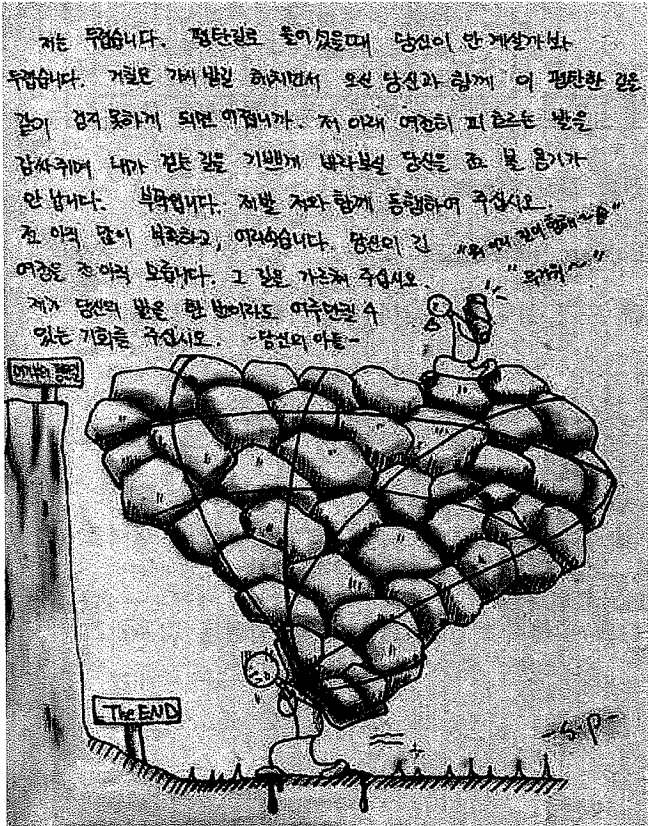 저는 두렵습니다. 평탄길로 들어섰을때 당신이 안 계실까봐
두렵습니다. 거칠은 가시 발길 헤치면서 오신 당신과 함께 이 평탄한 길을
같이 걷지 못하게 되면 어쩝니까. 저 아래 여전히 피 흐르는 발을
감싸쥐며 내가 걷는 길을 기쁘게 바라보실 당신을 전 볼 용기가
안 납니다. 부탁입니다. 제발 저와 함께 동행하여 주십시오.
전 아직 많이 부족하고, 어리숙습니다. 당신의 긴
여정을 전 아직 모릅니다. 그 길을 가르쳐 주십시오.
제가 당신의 발을 한 번이라도 어루만질 수
있는 기회를 주십시오. -당신의 아들-
"무거워~"
The END
-S.P-